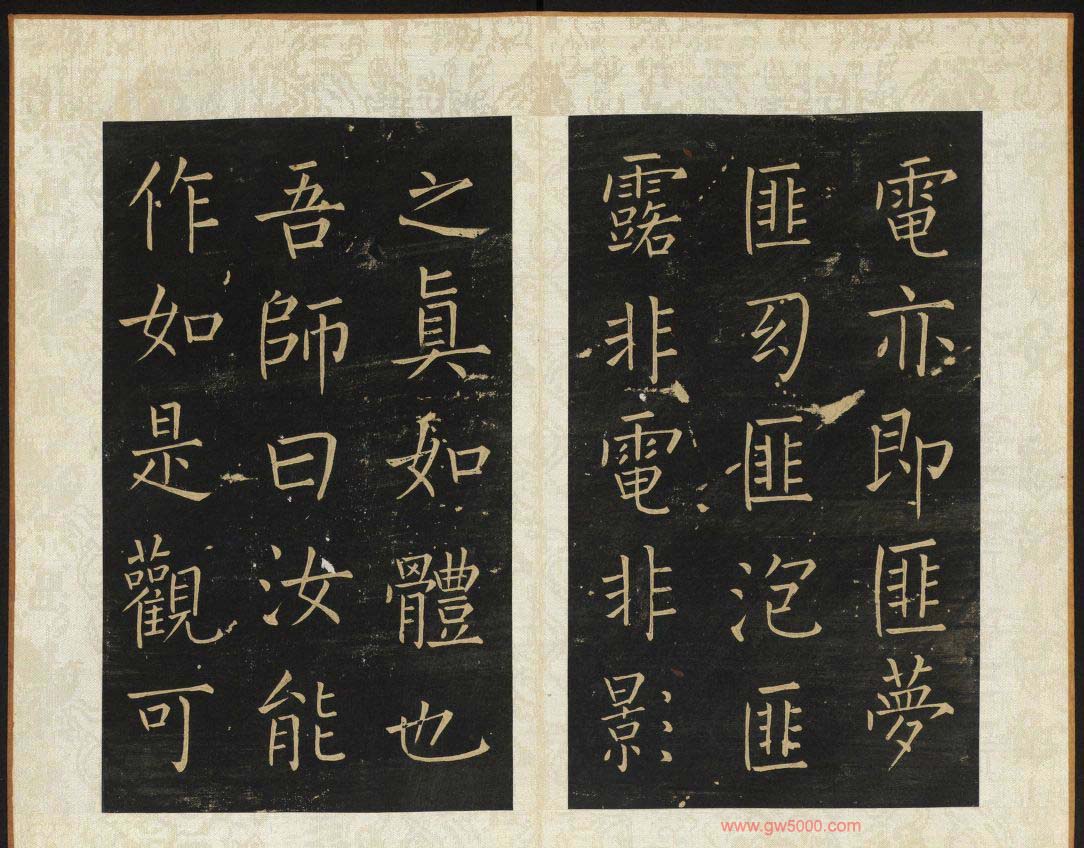 電亦即匪夢
匪幻匪泡匪
露非電非影
之眞如體也
吾師曰汝能
作如是觀可
www.gw5000.com